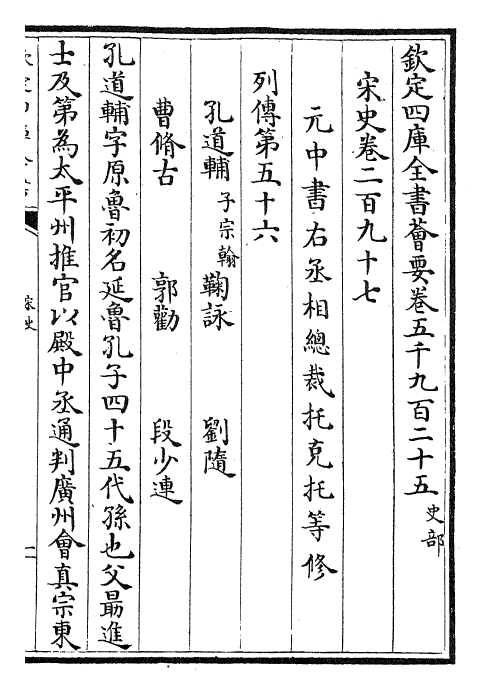 欽定四庫全書薈要卷五千九百二十五 史部
宋史卷二百九十七
元中書右丞相總裁托克托等修
列傳第五十六
孔道輔 子宗翰 鞠詠 劉隨
曹脩古 郭勸 段少連
孔道輔字原魯初名延魯孔子四十五代孫也父勗進
士及第為太平州推官以殿中丞通判廣州會真宗東
宋史
一